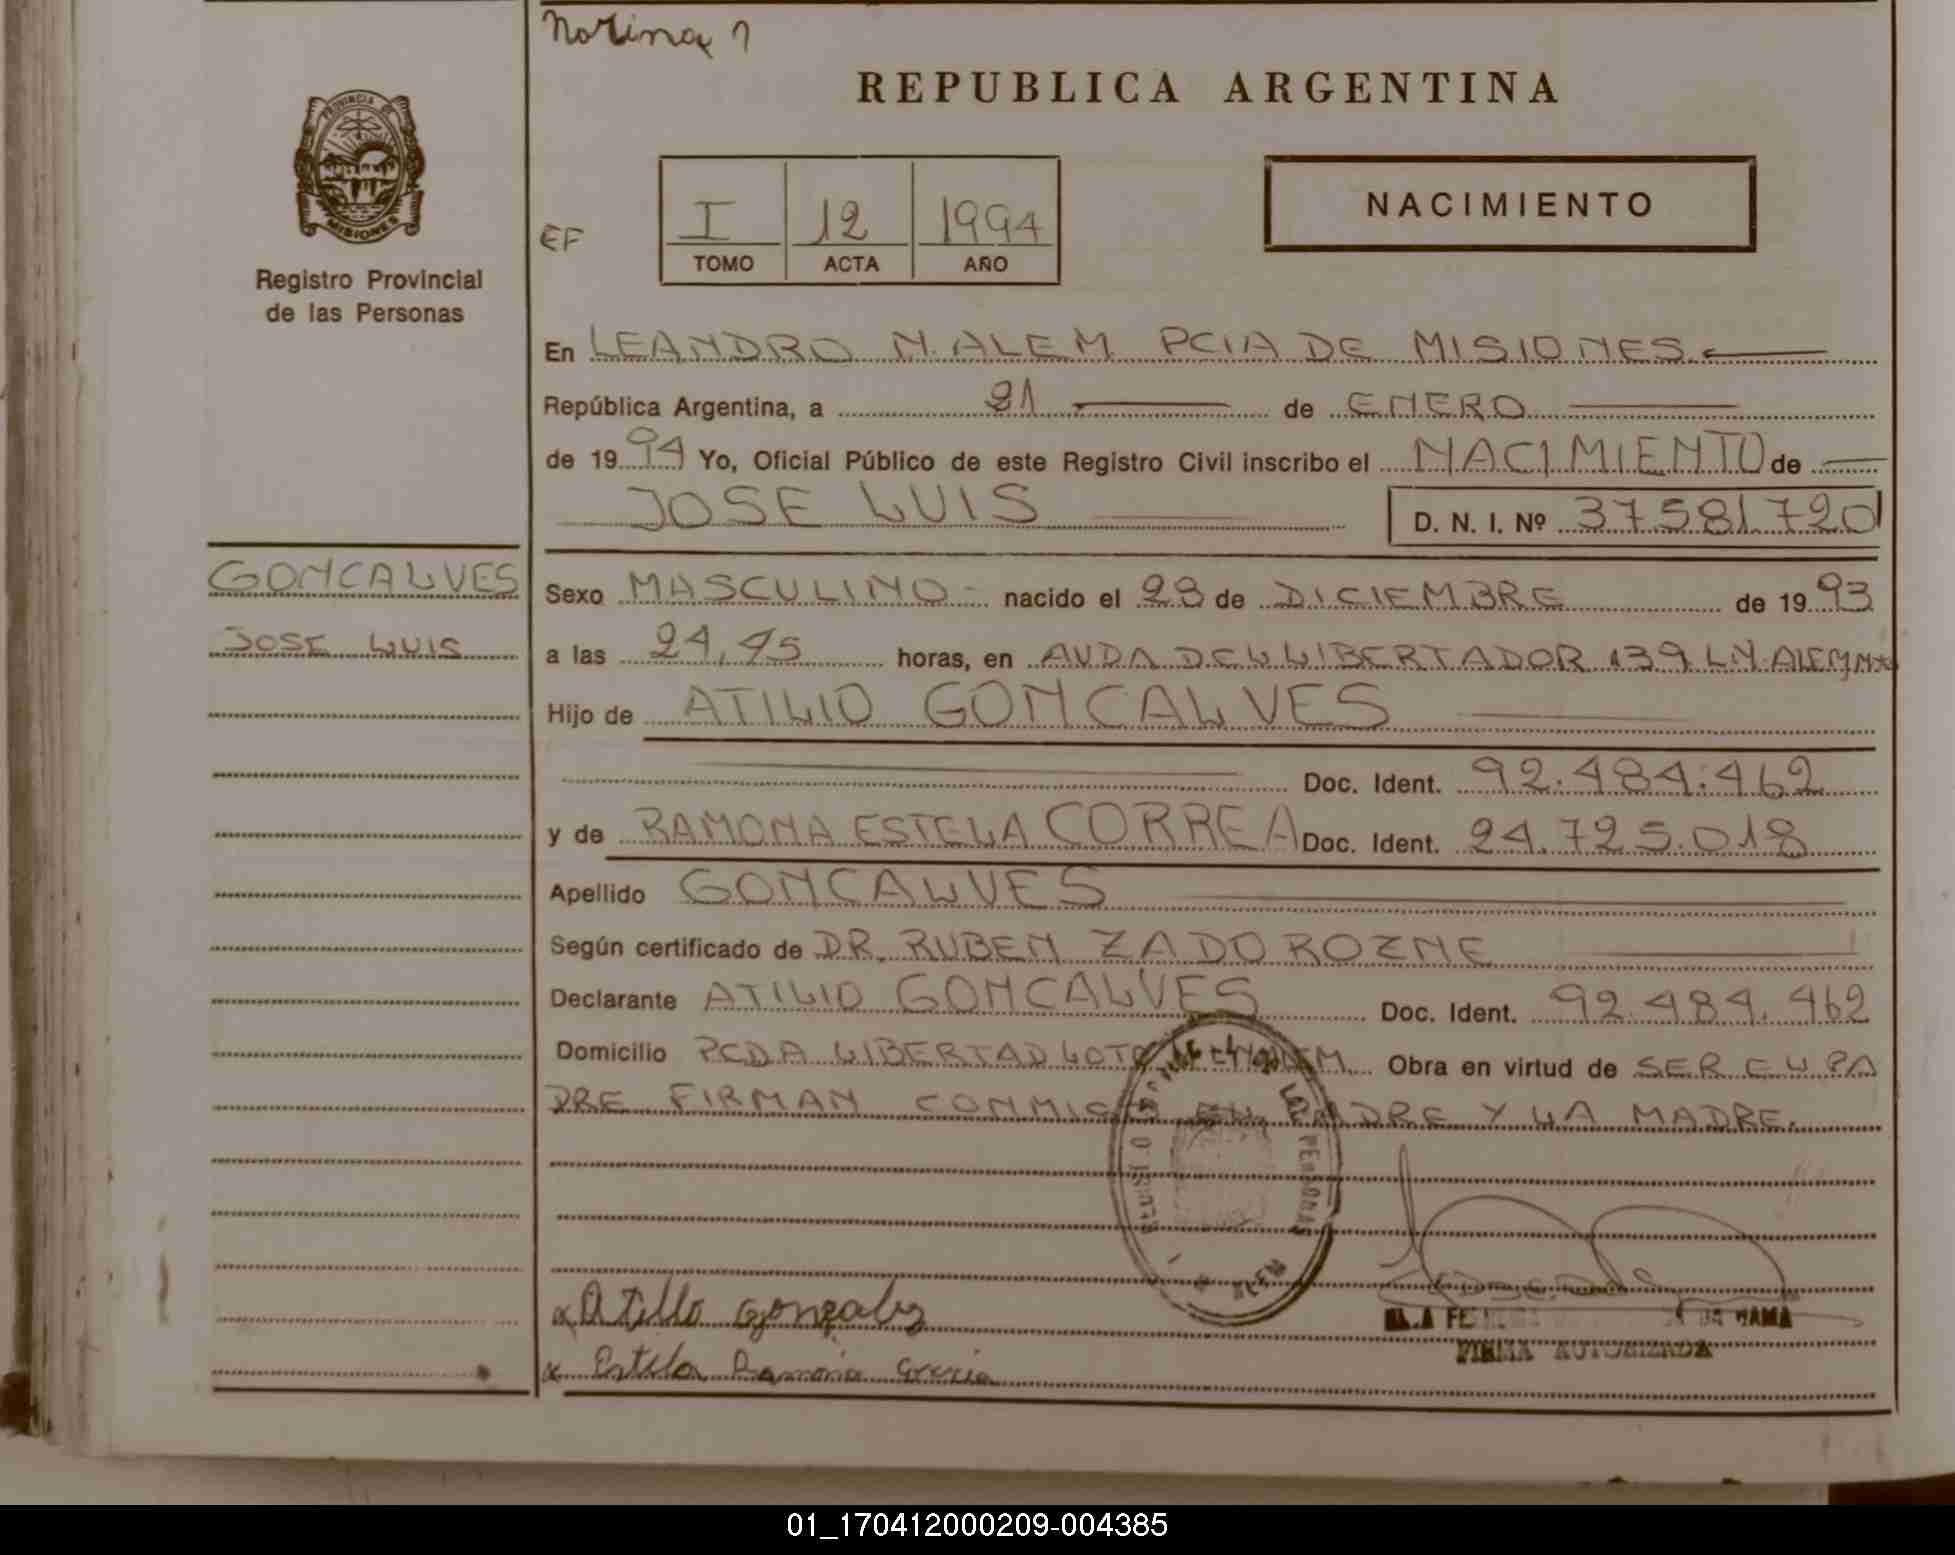 Norina 1
REPUBLICA ARGENTINA
PROVINCIA DE
MISIONES
Registro Provincial
de las Personas
NACIMIENTO
EF
I 12 1994
TOMO ACTA AÑO
En LEANDRO N. ALEM PCIA DE MISIONES
República Argentina, a 21 de ENERO
de 1994 Yo, Oficial Público de este Registro Civil inscribo el NACIMIENTO de
JOSE LUIS D. N. I. Nº 37581720
GONCALVES
JOSE LUIS
Sexo MASCULINO - nacido el 28 de DICIEMBRE de 1993
a las 24,45 horas, en AVDA DEL LIBERTADOR 139 L.N. ALEM
Hijo de ATILIO GONCALVES
Doc. Ident. 92.484.462
y de RAMONA ESTELA CORREA Doc. Ident. 24.725.018
Apellido GONCALVES
Según certificado de DR. RUBEN ZADOROZNE
Declarante ATILIO GONCALVES Doc. Ident. 92.484.462
Domicilio PCDA LIBERTAD Obra en virtud de SER EL PA
DRE FIRMAN CONMIGO EL PADRE Y LA MADRE.
x Atillo Gonzalez
x Estela Ramona
FIRMA AUTORIZADA
01_170412000209-004385